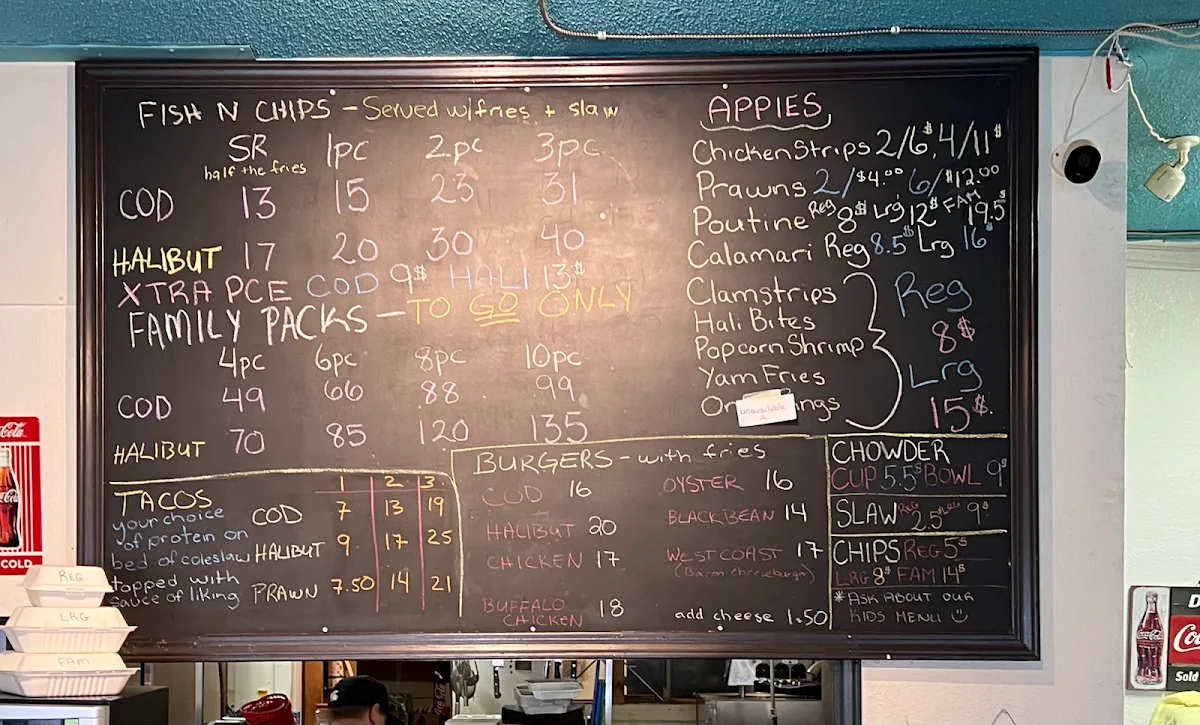 FISH N CHIPS - Served w/fries + slaw
SR 1pc 2pc 3pc
half the fries
COD 13 15 23 31
HALIBUT 17 20 30 40
XTRA PCE COD 9$ HALI 13$
FAMILY PACKS - TO GO ONLY
4pc 6pc 8pc 10pc
COD 49 66 88 99
HALIBUT 70 85 120 135
APPIES
Chicken Strips 2/6$, 4/11$
Prawns 2/$4.00 6/$12.00
Poutine Reg 8$ Lrg 12$ FAM 19.5$
Calamari Reg 8.5$ Lrg 16$
Clamstrips
Hali Bites
Popcorn Shrimp
Yam Fries
On ings
unavailable
Reg
8$
Lrg
15$
TACOS
your choice
of protein on
bed of coleslaw
topped with
sauce of liking
1 2 3
COD 7 13 19
HALIBUT 9 17 25
PRAWN 7.50 14 21
BURGERS - with fries
COD 16
HALIBUT 20
CHICKEN 17
BUFFALO
CHICKEN 18
OYSTER 16
BLACK BEAN 14
WEST COAST 17
(Bacon cheeseburger)
add cheese 1.50
CHOWDER
CUP 5.5$ BOWL 9$
SLAW REG 2.5 LRG 9$
CHIPS REG 5$
LRG 8$ FAM 14$
*ASK ABOUT OUR
KIDS MENU
REG
LRG
FAM
Cola
COLD
Coca
Sold